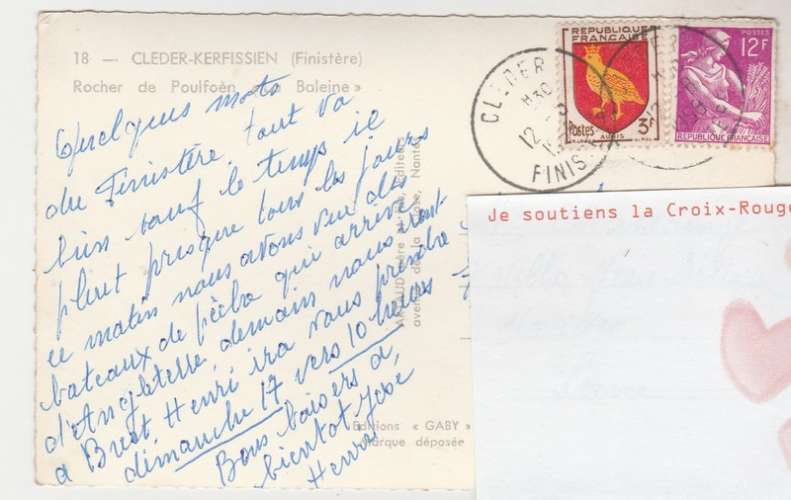 18 — CLEDER-KERFISSIEN (Finistère)
Rocher de Poulfoën « La Baleine »
Quelques mots
du Finistère tout va
bien sauf le temps il
pleut presque tous les jours
ce matin nous avons vue des
bateaux de pêche qui arrive
d'Angleterre, demain nous iront
a Brest Henri ira vous prendre
dimanche 17 vers 10 heures
Bons baisers a
bientot José
Henri
Editions « GABY »
marque déposée
CLEDER
H30
12
FINIS
REPUBLIQUE
FRANÇAISE
Postes
3F
AUNIS
POSTES
12F
REPUBLIQUE FRANÇAISE
Je soutiens la Croix-Rouge